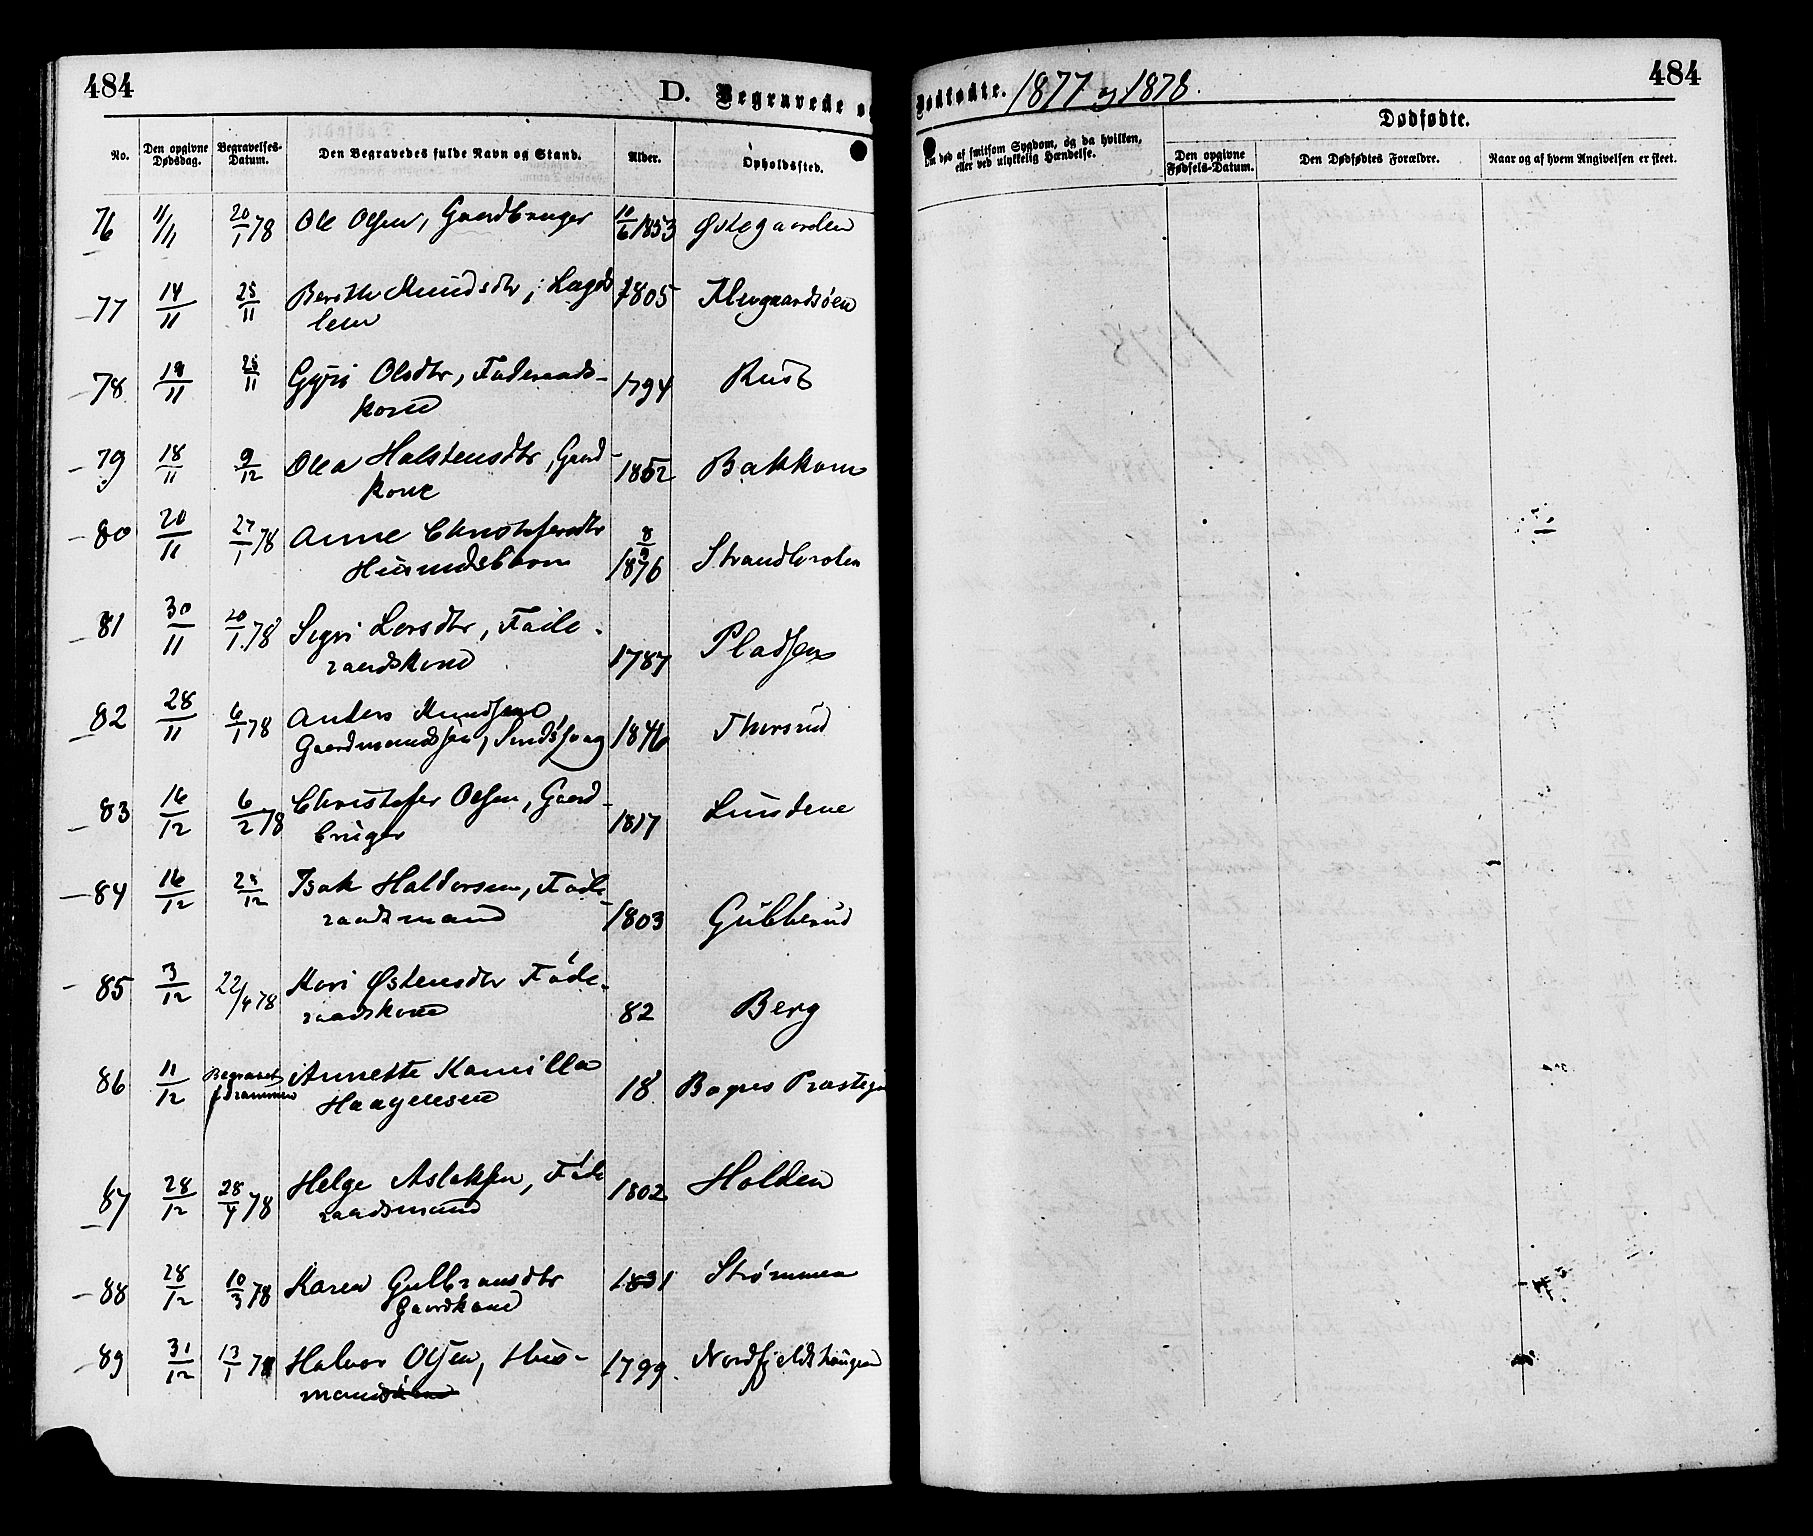 484
D. Begravede og
Dødfødte. 1877 og 1878.
484
No.
Den opgivne Dødsdag.
Begravelses-Datum.
Den Begravedes fulde Navn og Stand.
Alder.
Opholdssted.
Om død af smitsom Sygdom, og da hvilken,
eller ved ulykkelig Hændelse.
Dødfødte.
Den opgivne Fødsels-Datum.
Den Dødfødtes Forældre.
Naar og af hvem Angivelsen er skeet.
76 11/11 20/1 78 Ole Olsen, Gaardbruger 10/6 1853 Østegaarden
77 14/11 25/11 Berthe Knudsdtr, Lægds 1805
lem
78 19/11 25/11 Gyri Olsdtr, Føderaads- 1794 Rust
kone
79 18/11 9/12 Olea Halstensdtr, Gaard- 1852 Bakkom
kone
80 20/11 27/1 78 Anne Christofersdtr 8/9 1876 Strandbroten
Husmdsbarn
81 30/11 20/1 78 Sigri Larsdtr, Føde- 1787 Pladsen
raadskone
82 28/11 6/1 78 Anders Knudsen 1846 Thorsrud
Gaardmandssøn, Sindssvag
83 16/12 6/2 78 Christofer Olsen, Gaard- 1817 Lundene
bruger
84 16/12 28/12 Isak Haldorsen, Føde- 1803 Gulberud
raadsmand
85 3/12 22/4 78 Kari Østensdtr Føde- 82 Berg
raadskone
86 11/12 Begravet Annette Kamilla 18 Bagnes Præstegd
f Drammen Haagensen
87 28/12 28/4 78 Helge Aslaksen, Føde 1802 Holden
raadsmand
88 28/12 10/3 78 Karen Gulbransdtr 1831 Strømmen
Gaardkone
89 31/12 13/1 78 Halvor Olsen, Hus- 1799 Nordfjeldshaugen
mand